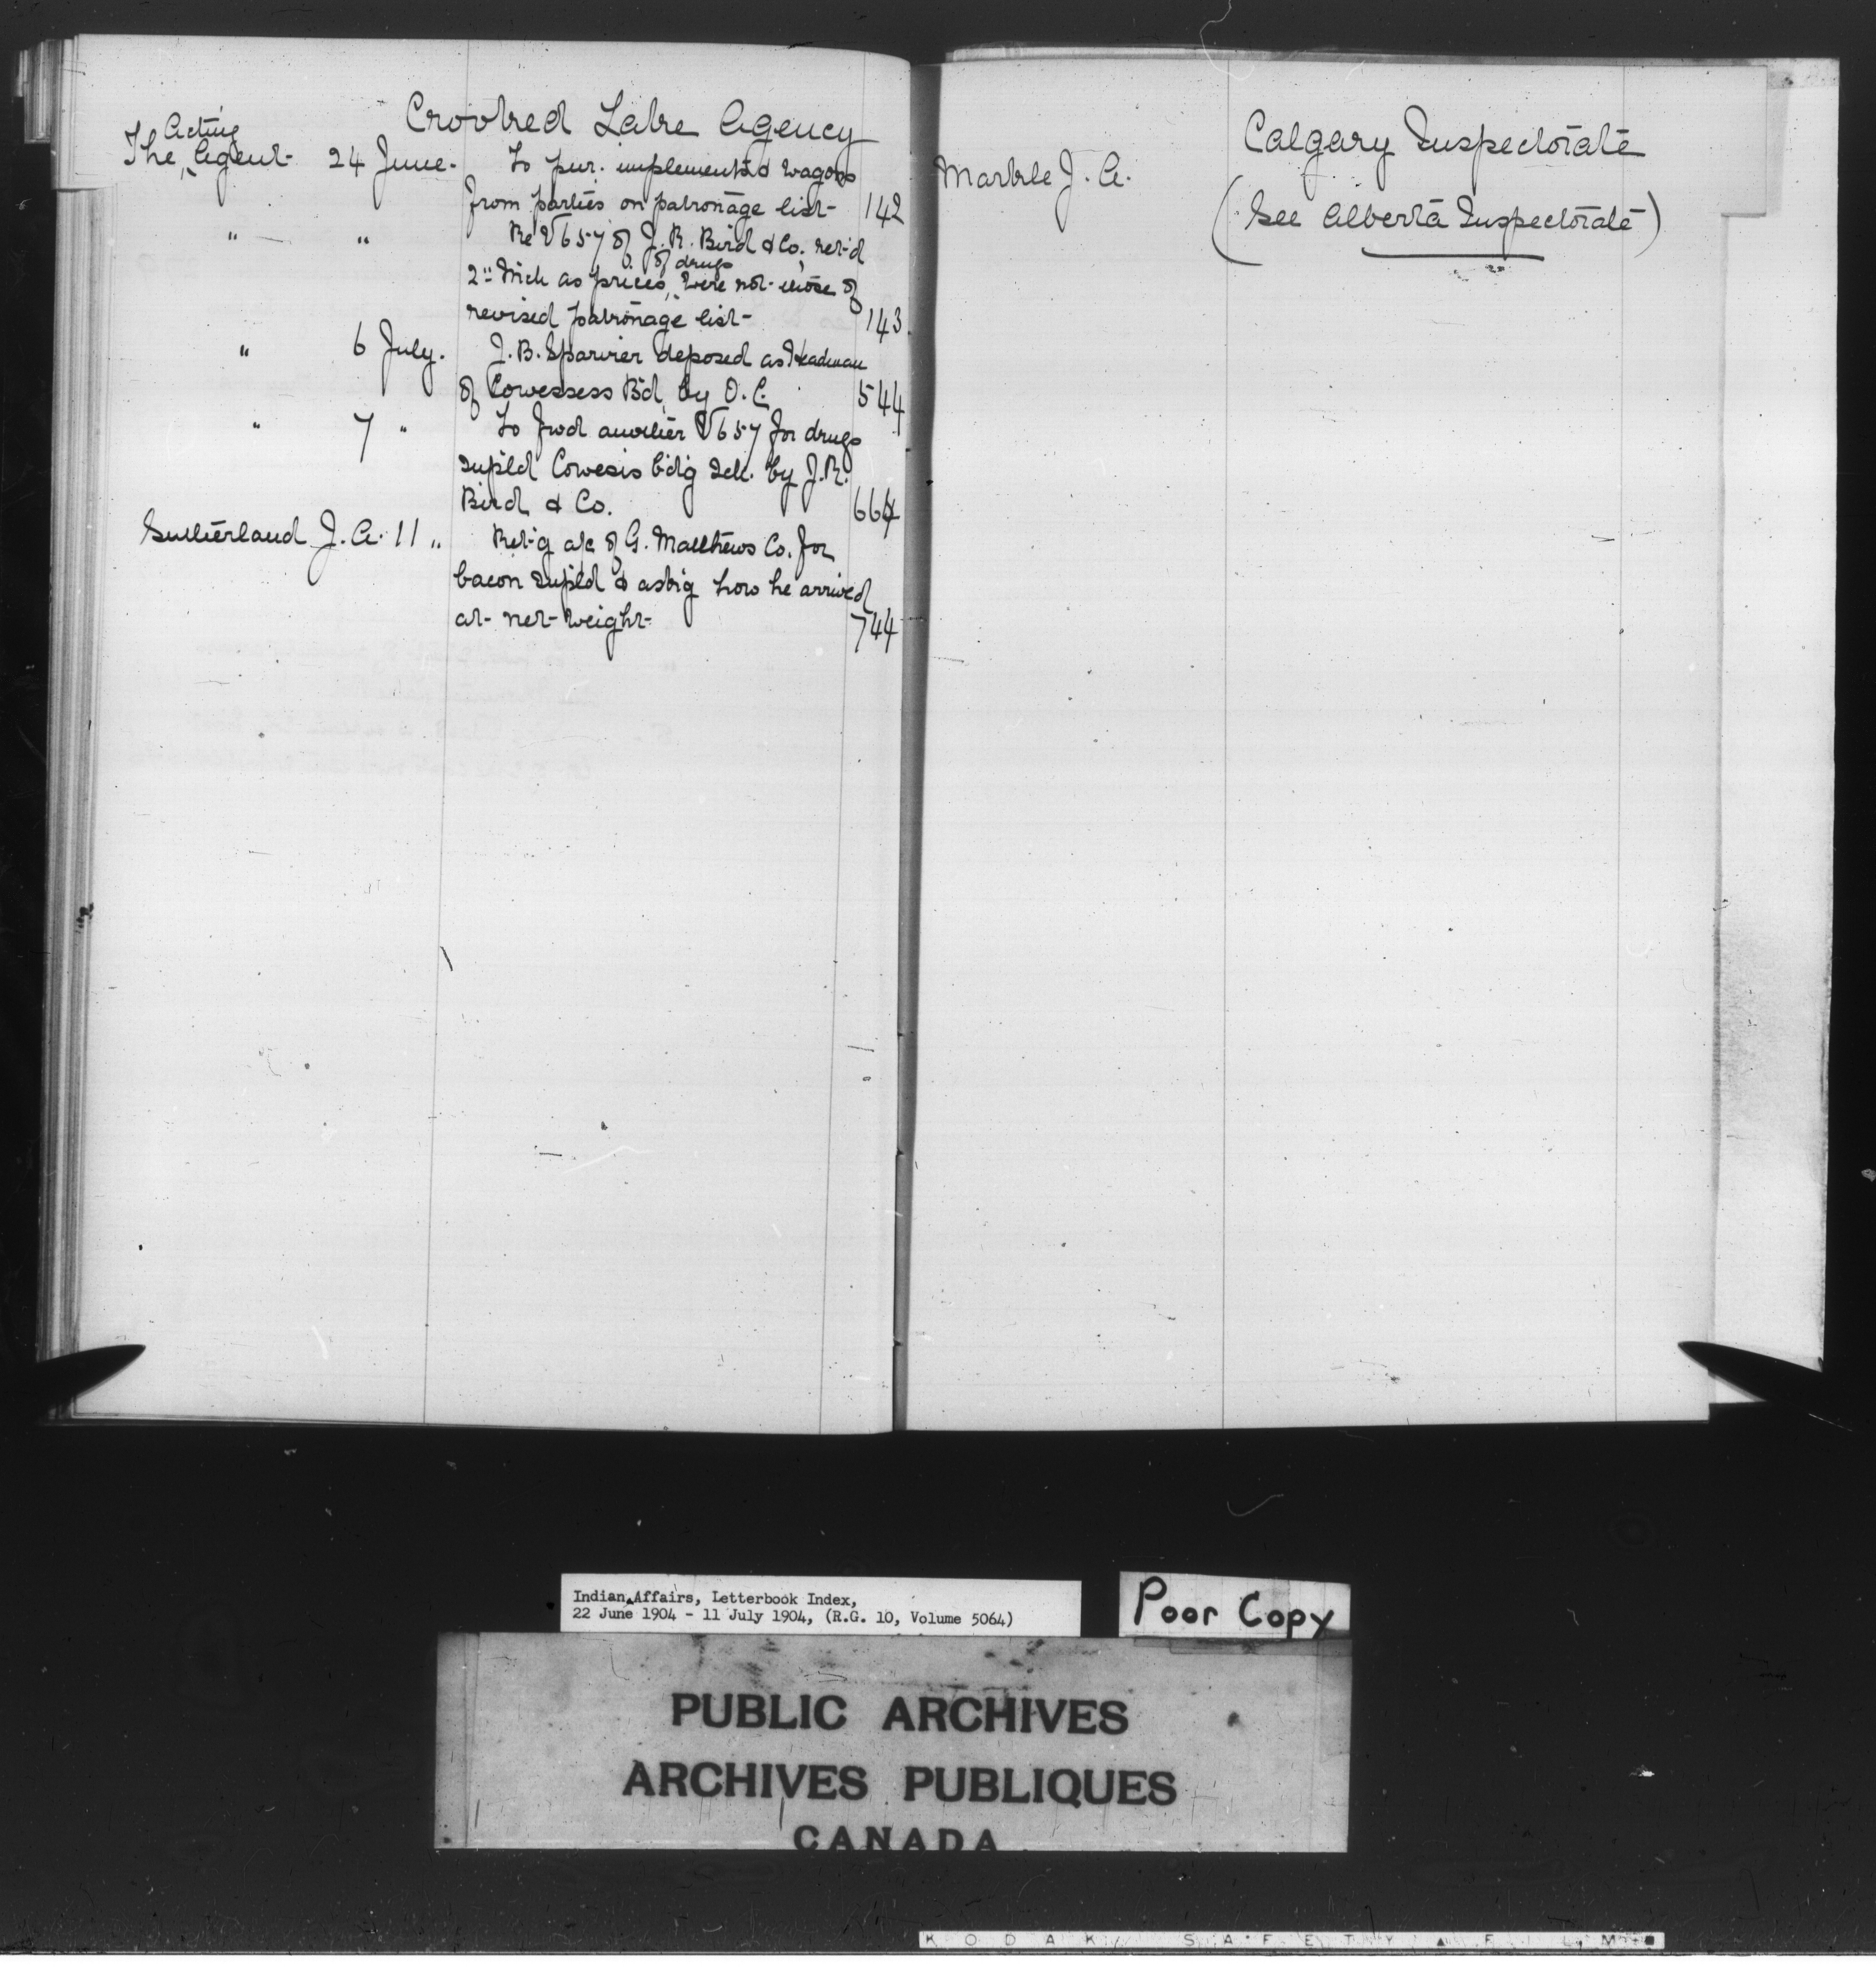 Crooked Lake Agency
Acting
The Agent 24 June. To pur. implements & wagons
from parties on patronage list 142
" " Re V657 of J. R. Bird & Co. ret'd
of drugs
2nd Mch as prices were not those of
revised patronage list 143
" 6 July. J. B. Sparvier deposed as Headman
of Cowessess Bd by O. C. 544
" 7 " To fwd another V657 for drugs
supld Cowesis bdg sch. by J. R.
Bird & Co. 664
Sutherland J. A. 11 " Ret'g a/c of G. Matthews Co. for
bacon supld & askig how he arrived
at net weight 744
Calgary Inspectorate
Markle J. A.
(See Alberta Inspectorate)
Indian Affairs, Letterbook Index,
22 June 1904 - 11 July 1904, (R.G. 10, Volume 5064)
Poor Copy
PUBLIC ARCHIVES
ARCHIVES PUBLIQUES
CANADA
KODAK SAFETY ▲ FILM ■